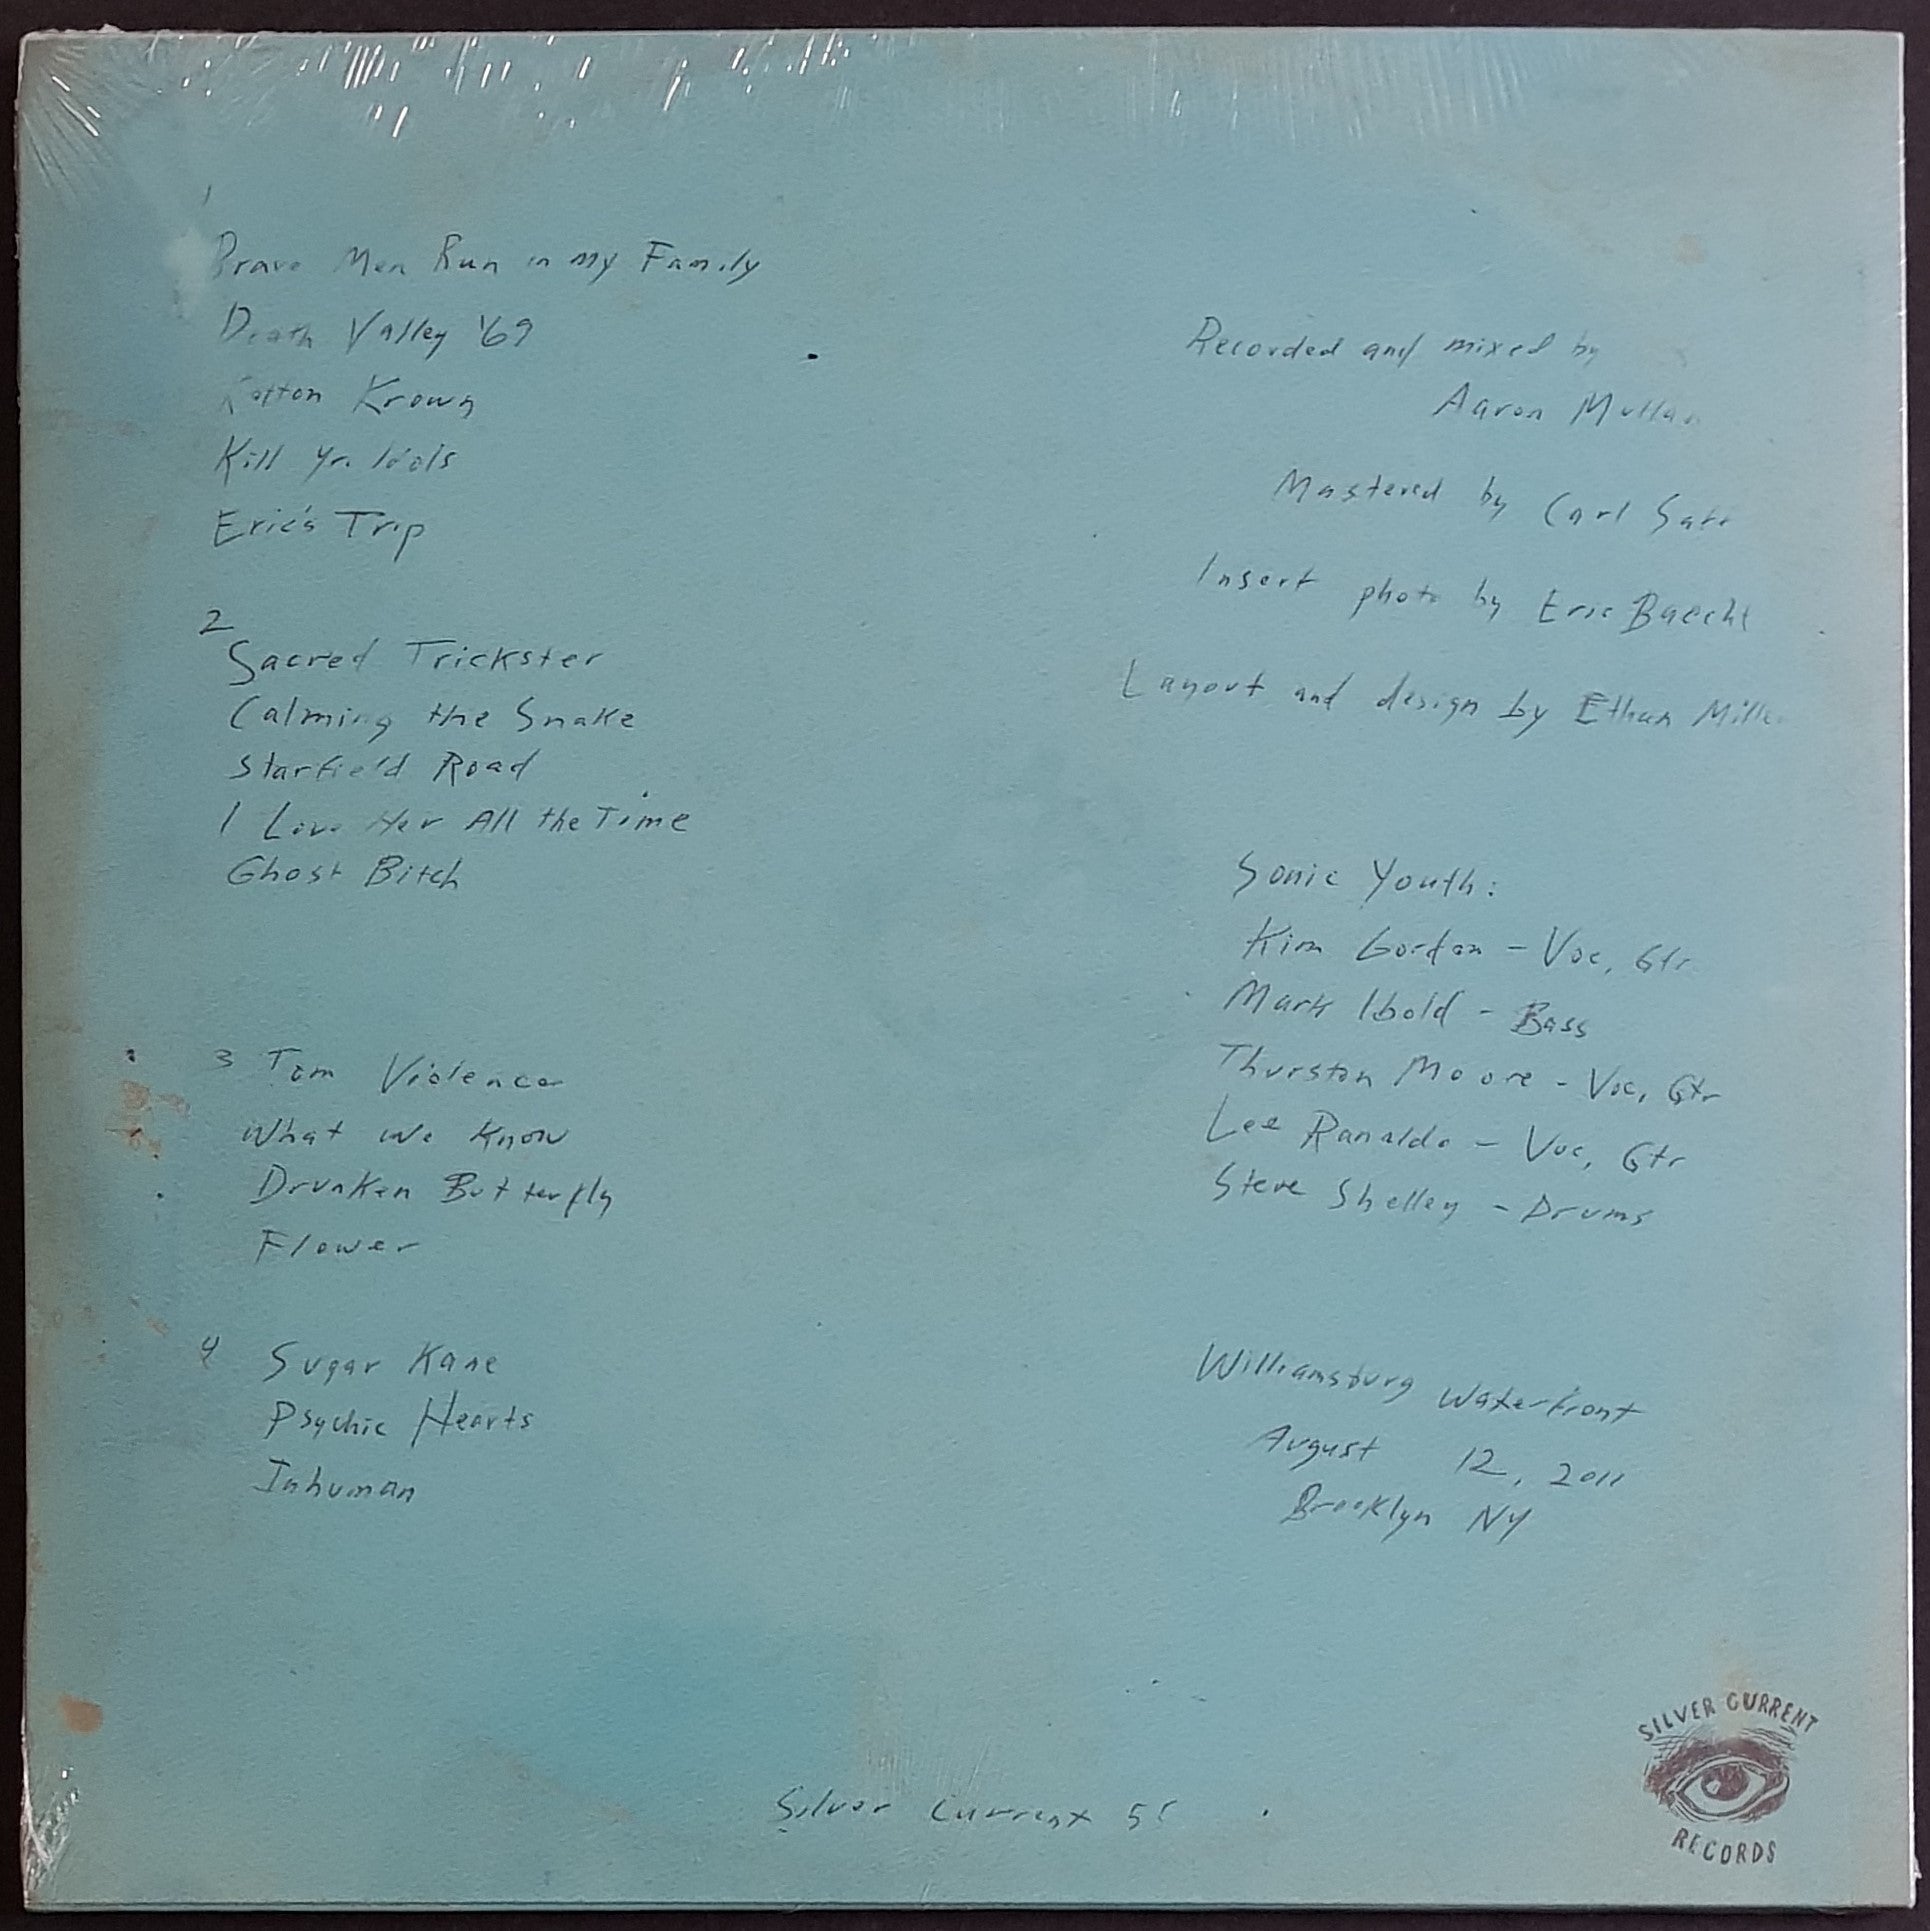 1
Brave Men Run in my Family
Death Valley '69
Kotton Krown
Kill yr. Idols
Eric's Trip
2
Sacred Trickster
Calming the Snake
Starfield Road
I Love Her All the Time
Ghost Bitch
3 Tom Violence
What We Know
Drunken Butterfly
Flower
4 Sugar Kane
Psychic Hearts
Inhuman
Recorded and mixed by
Aaron Mullan
Mastered by Carl Saff
Insert photo by Eric Baecht
Layout and design by Ethan Miller
Sonic Youth:
Kim Gordon - Voc, Gtr
Mark Ibold - Bass
Thurston Moore - Voc, Gtr
Lee Ranaldo - Voc, Gtr
Steve Shelley - Drums
Williamsburg Waterfront
August 12, 2011
Brooklyn NY
Silver Current
SILVER CURRENT
RECORDS